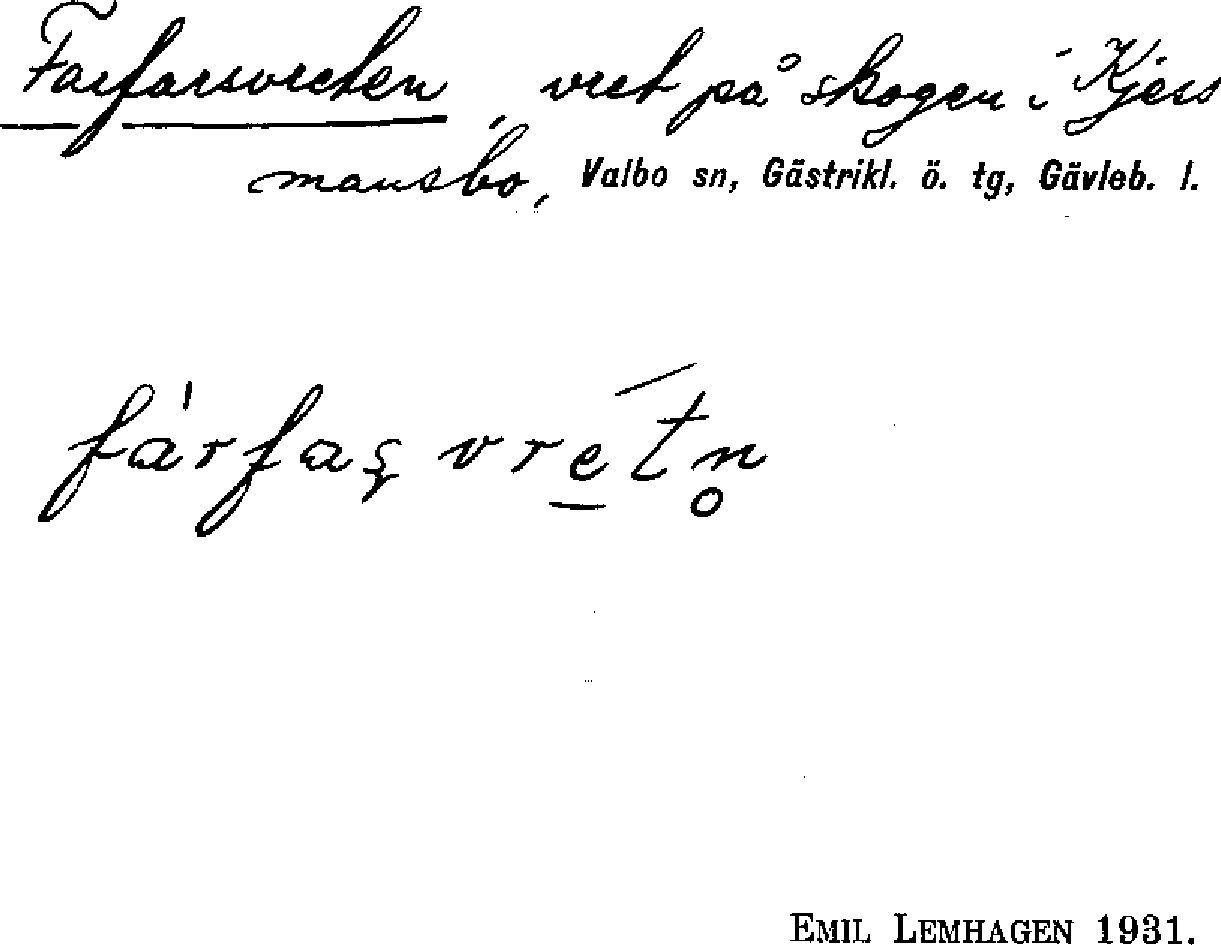 Farfarsvreten, vret på skogen i Kjess
mansbo, Valbo sn, Gästrikl. ö. tg, Gävleb. l.
fàrfaʂ vre̲´tn̥
EMIL LEMHAGEN 1931.